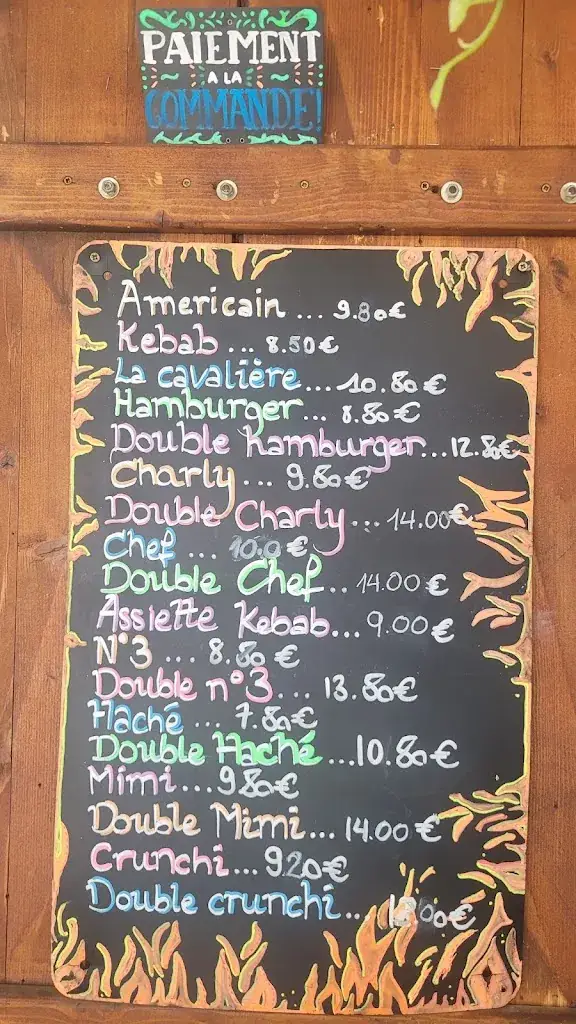 PAIEMENT
A LA
COMMANDE!
Americain ... 9.80€
Kebab ... 8.50€
La cavalière... 10.80€
Hamburger... 8.80€
Double hamburger...12.80€
Charly... 9.80€
Double Charly... 14.00€
Chef ... €
Double Chef.. 14.00€
Assiette Kebab... 9.00€
N°3 .... 8.80€
Double n°3... 13.80€
Haché ... 7.80€
Double Haché ...10.80€
Mimi...9.80€
Double Mimi... 14.00€
Crunchi...9.20€
Double crunchi...